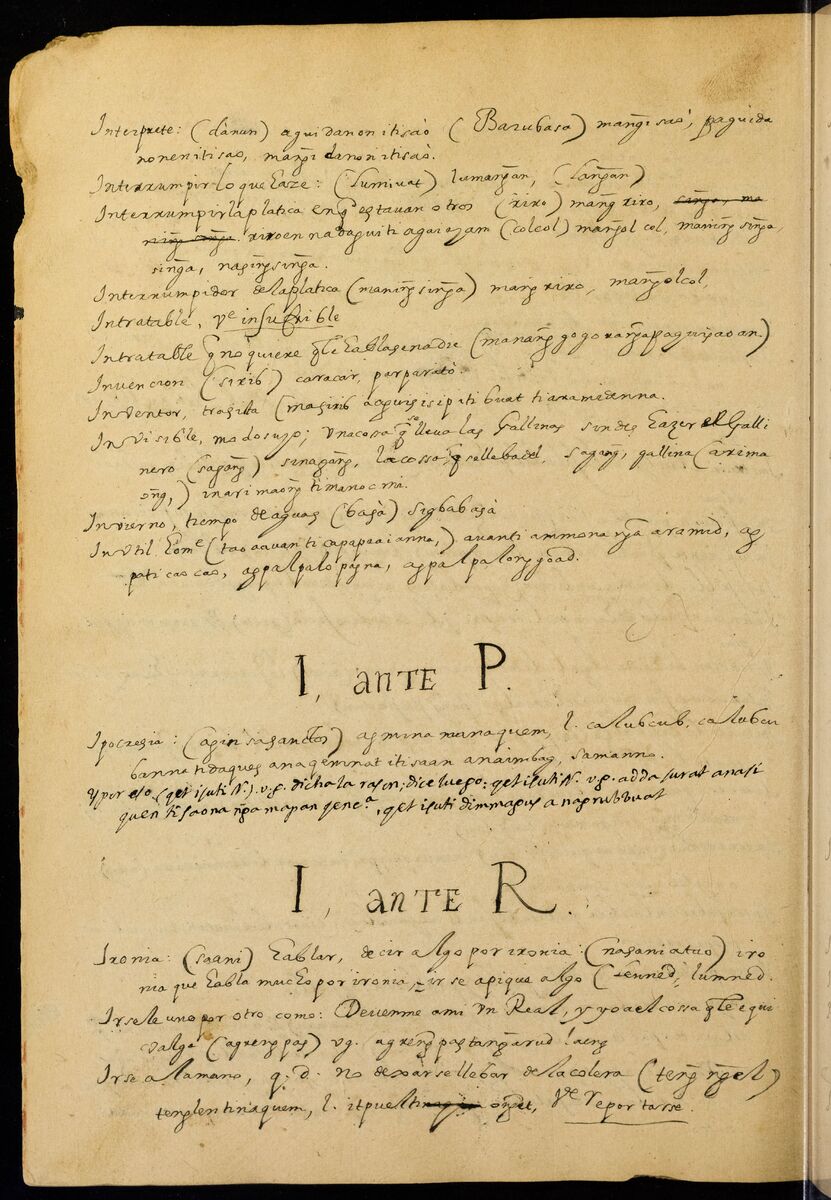 Interprete: (dànun) aguidanonitisaò (Barubasa) mang̃isaò, paguida
nonenitisao, mang̃i danonitisaò.
Interrumpir lo que haze: (lumiuat) lumang̃an, (lang̃an)
Interrumpir la platica en q̃ estavan otros (riro) mang̃riro,
riroen nadaguiti agaiaiam (colcol) mang̃ol col, maning̃ sing̃a,
sing̃a, naging̃sing̃a.
Interrumpidor de la platica (maning̃ sing̃a) mang̃ riro, mang̃olcol,
Intratable, Ve insufrible
Intratable q̃ no quiere q̃ le hable nadie (manang̃ gogo
Invencion (sirib) caracar, parparatò.
Inventor, trasista (masirib
Invisible, madosujo; vna cosa q̃ se lleva las gallinas sin des hazer el galli
nero (sagang) sinagang, la cossa q̃ se lleba el sagang, gallina (arima
ong,) inarimaong ti manoc mi.
Invierno, tiempo de aguas (bagà) sigbabagà
Invtil home (tao aavan ti capapaaianna,) avanti ammona ng̃a aramid, ag
pati caocao, agpalpalo pagna, agpalpalong
I, ante P.
Ipocresia: (agin sasanctos) agminamanaquem, l. calubcub, calubcu
banna ti daques anaquemna titisaan a naimbag, samanno.
Y por eso (qet isuti N.) v.g. dicha la rason; dice luego: qet isuti N. v.g. adda surat a nasi
quen ti saona ng̃a mapan qenca, qet isuti dimmagus a nagrubbuat
I, ante R.
Ironia: (saani) hablar, decir algo por ironia: (nasaniatuo) iro
nia que habla mucho por ironia, irse a pique algo (lenned, lumned.
Irsele uno por otro como: Devenme a mi vn Real, y yo a el cossa q̃ le equi
valga (agreng pas) vg. agreng pas tang̃arud laeng
Irse a la mano, q. d. no dexarse llebar de la colera (teng̃ ng̃el)
teng̃lentinaquem, l. Ve Reportarse.